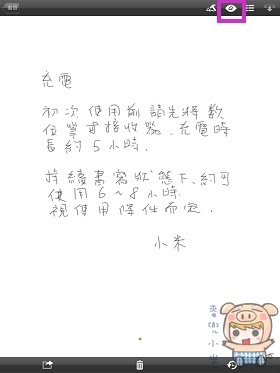 充電
初次使用前請先將數
位筆或接收器，充電時
長約5小時．
持續書寫狀態下，約可
使用6~8小時．
視使用條件而定．
小米
麥兜小米